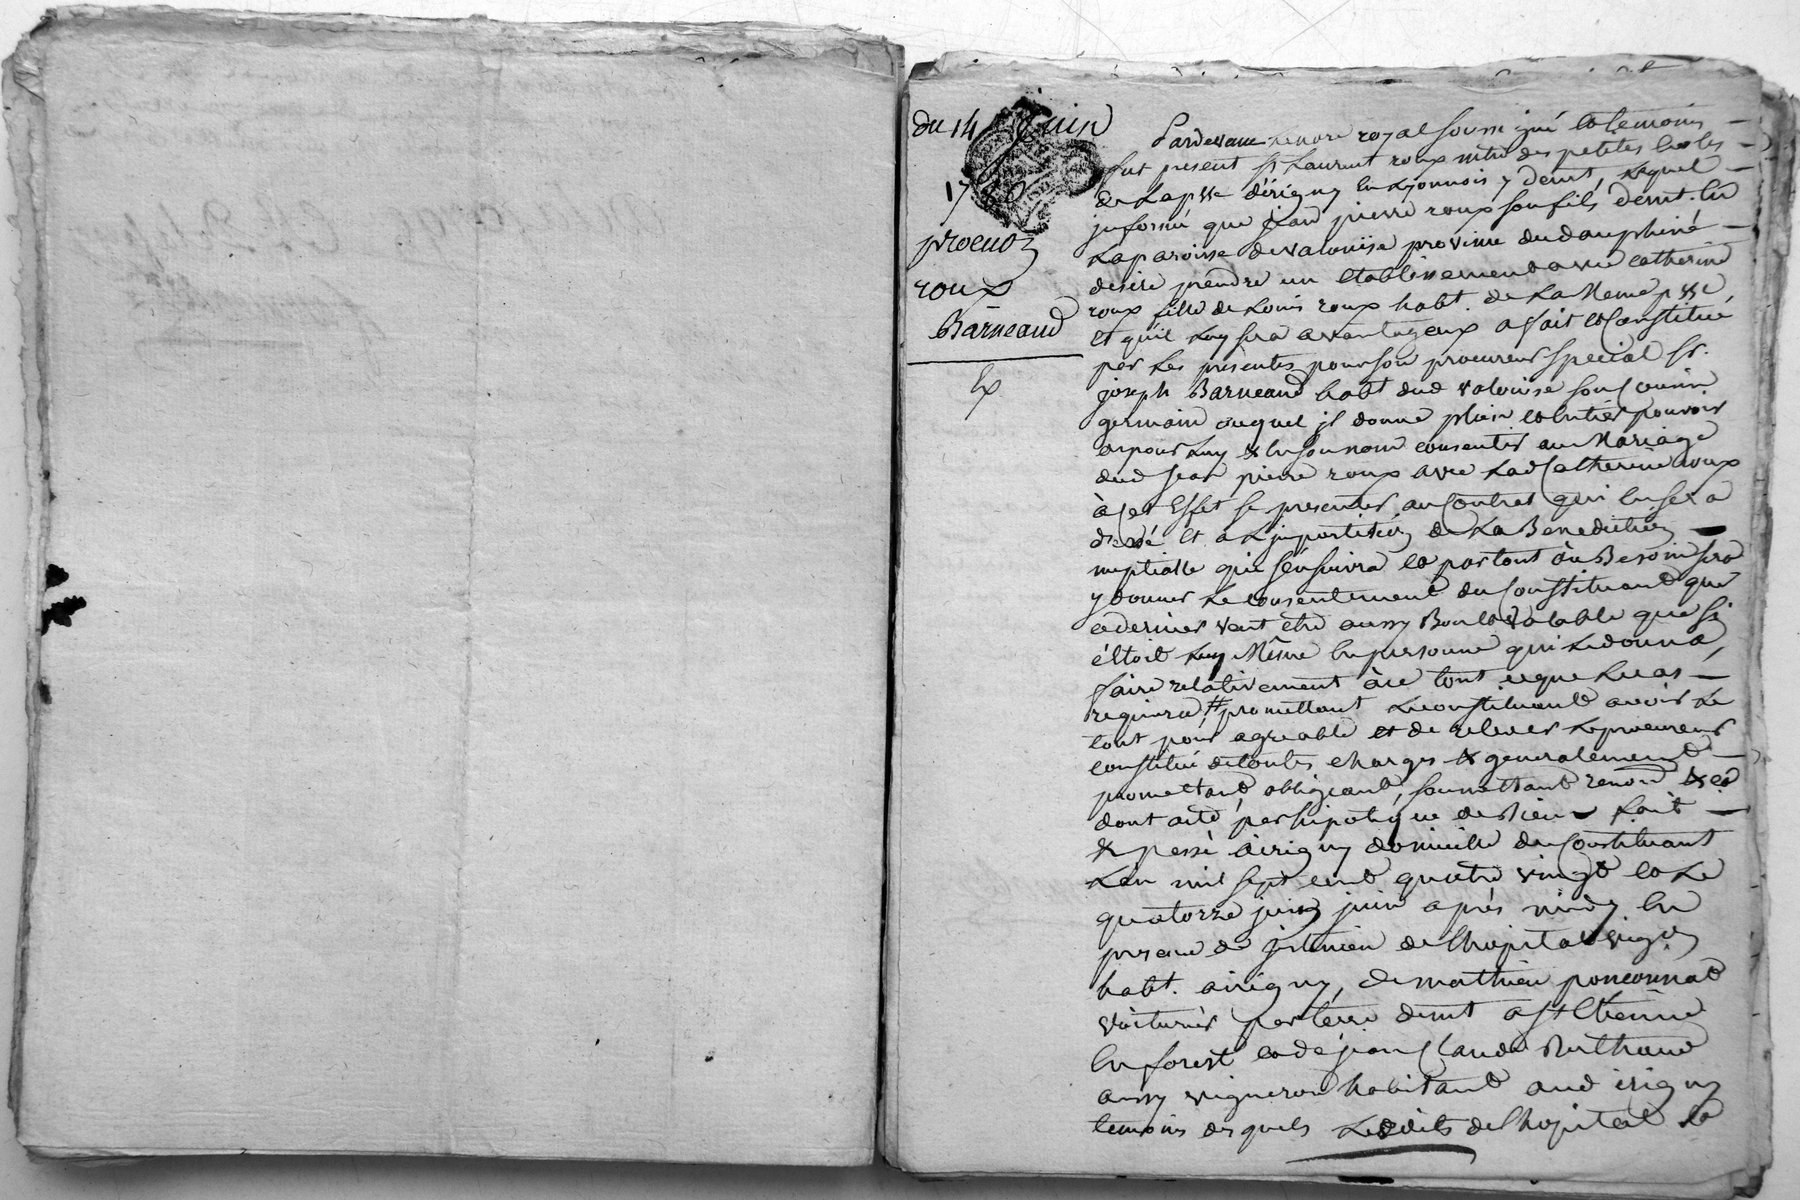 du 14 Juin
1780
procuo͞n
roux
Barneaud
Ex
Pardevant Le no.re royal soussigné et temoins
fut present Sr. Laurent roux mtre des petites Ecoles
de La psse d'irigny En Lyonnois y demt, Lequel
informé que jean pierre roux son fils demt. En
La paroisse de valouise province du dauphiné
desire prendre un Etablissement avec catherine
roux fille de Louis roux habt. de La Meme psse
et qu'il Luy sera avantageux a fait et Constitué
par Les presentes pour son procureur special Sr.
joseph Barneaud habt dud valouise son Cousin
germain auquel il donne plein et Entier pouvoir
de pour Luy & En son nom consentir au Mariage
dud jean pierre roux avec Lad Catherine roux
à Cet Effet se presenter au Contrat qui En sera
dressé et a L'impartition de La Benediction
nuptialle qui s'ensuivra et partout où Besoin sera
y donner Le consentement du Constituant que
ce dernier veut être aussy Bon et valable que si
c'étoit Luy Même En personne qui Le donna,
faire relativement à ce tout ce que Le cas
requierra, # promettant Le constituant avoir Le
tout pour agreable et de relever Le procureur
constitué de toutes charges & generalement
promettant, obligeant, soumettant renonc͞ & c͞a
dont acte par hipoteque de Biens fait
& passé a irigny domicille du Constituant
L'an mil sept cent quatre vingt et Le
quatorze juin après midy En
presence de de Lhopital vigon
habt. a irigny, de mathieu ponconnat
voiturier par terre demt a St Etienne
En forest et de jean Claude Berthaud
aussy vigneron habitant aud irigny
temoins desquels Lesdits de Lhopital et